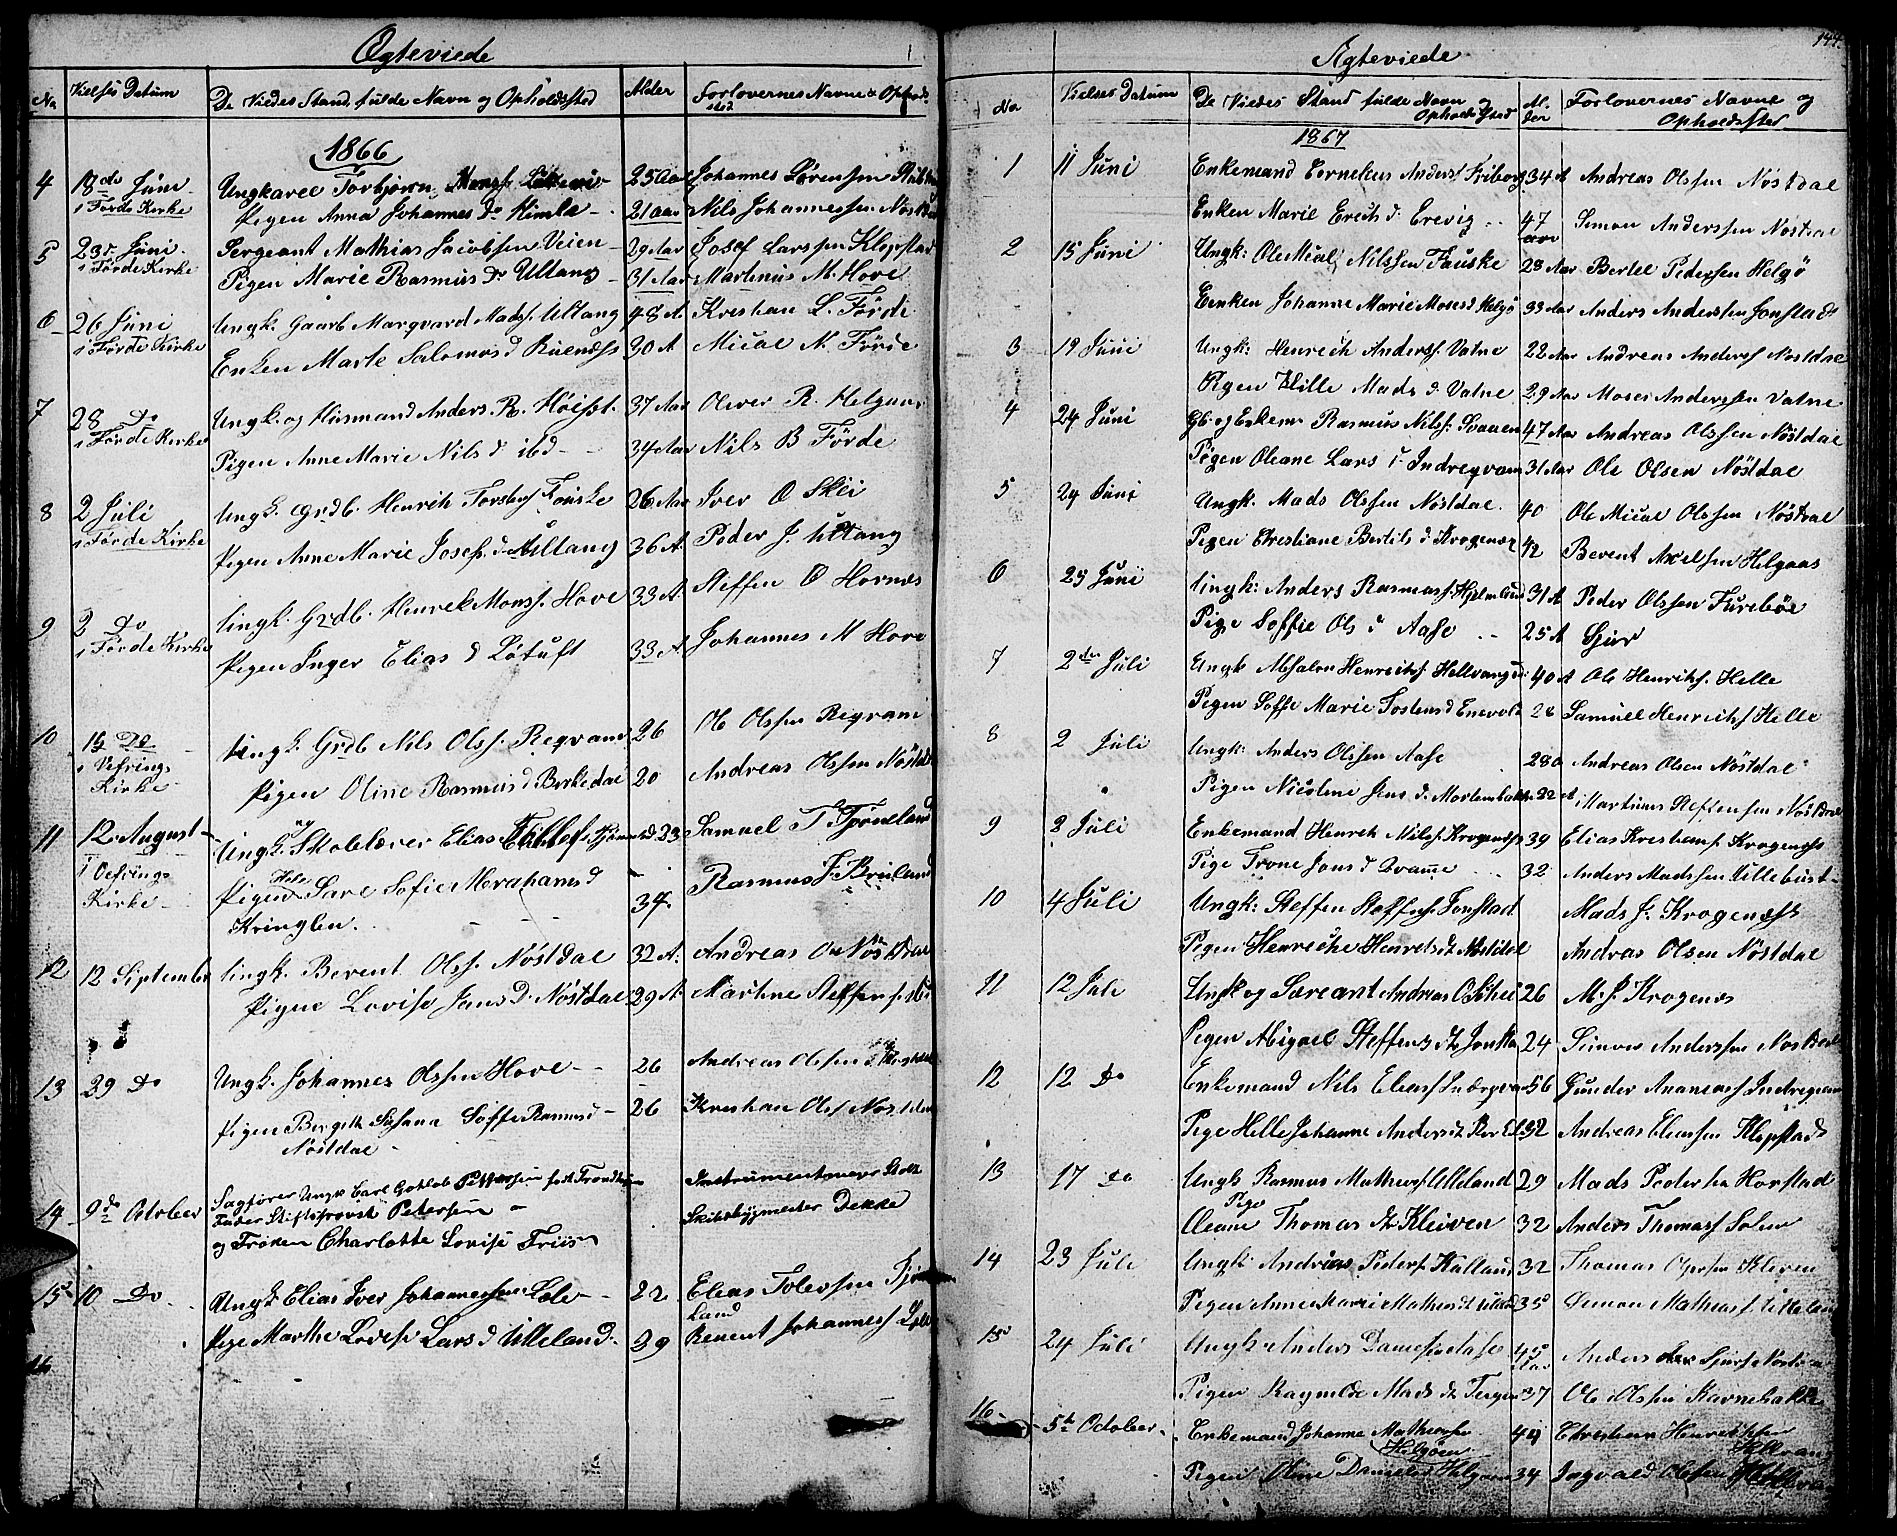 Ægteviede
No Vielses Datum De Viedes Stand, fulde Navn og Opholdsted Alder Forlovernes Navne & Ophold-
sted
1866
4 18de Juni Ungkarel Torbjørn Monss. 25 Aar Johannes Sørensen
i Førde Kirke Pigen Anna Johannes Dr Himle 21 Aar Nils Johannessen
5 23de Juni Sergeant Mathias Jacobsen Veien 29 Aar Josef Larssen Klopstad
i Førde Kirke Pigen Marie Rasmus Dr Ullang 31 Aar Martinus M. Hove
6 26 Juni Ungk. Gaarb Margvard Madss. Ullang 48 A Kreshan L. Førde
i Førde Kirke Enken Marte Salomons d 30 A Micael N. Førde
7 28 Do Ungk. og Husmand Anders. R. Høisst. 37 Aar Oliver R. Helgaas
i Førde Kirke Pigen Anne Marie Nils d ibd 34 Aar Nils B Førde
8 2 Juli Ungk. Grdb. Henrik 26 Aar Iver O Skei
i Førde Kirke Pigen Anne Marie Josef. d Ullang 36 A. Peder J. Ullang
9 2 Do Ungk. Grdb. Henrek Monss. Hove 33 A Steffen O Hornes
i Førde Kirke Pigen Inger Elias d Løtuft 33 A Johannes M Hove
10 15 Do Ungk. Grdb Nils Olss. Reqvam 26 Ole Olssen Reqvam
i Vefrings
Kirke Pigen Oline Rasmus d Birkedal 20 Andreas Olssen Nøstdal
11 12 August Ungk. Skolelærer Elias 23 Samuel T Tjørneland
i Vefrings Pigen Sare Sofie Abrahams d 34. Rasmus J. Bruland
Kirke Kringlen.
12 12 September Ungk. Berent Olss. Nøstdal 32 A. Andreas Ols Nøstdal
Pigen Lovise Jens D. Nøstdal 29 A. Martine Steffens
13 29 Do Ungk. Johannes Olssen Hove 26 Andreas Olssen Nøstdal
Pigen Bergith Susana Soffi Rasmusd 26 Kreshan Ols Nøstdal
Nøstdal
14 9de October Sagfører Ungk Carl Gotlob Pettersen født Trondhjem Instrumentmager
Fader Stiftsprovst Petersen Skibsbygmester Dekke
og Frøken Charlotte Lovise Friis
15 10 Do Ungk. Elias Iver Johannessen Løle 22 Elias Tolevsen
land
Pige Marthe Lovise Lars d Ulleland. 29 Berent Johanness Løle
16
Ægteviede 144.
No Vielses Datum De Viedes Stand fulde Navn og Opholds Sted Al-
der Forlovernes Navne og
Opholdssted
1867
1 11 Juni Enkemand Cornelius Anders Friborg 34 A Andreas Olssen Nøstdal
Enken Marie Erichs d. Erevig 47 Aar Simon Anderssen Nøstdal
2 15 Juni Ungk: Ole Mical Nilssen Fauske 28 Aar Bertel Pederssen Helgø
Enken Johanne Marie Mosesd Helgø 33 Aar Anders Anderssen Jonstad
3 19 Juni Ungk: Henrich Anderss. Vatne 22 Aar Andreas Anderss Nøstdal
Pigen Hille Mads d. Vatne 29 Aar Moses Anderssen Vatne
4 24 Juni Gb. og Enkem Rasmus Nilss. Svanen 47 Aar Andreas Olssen Nøstdal
Pigen Oleane Lars d. Indreqvam 31 Aar Ole Olsen Nøstdal
5 24 Juni Ungk. Mads Olssen Nøstdal. 40 Ole Mical Olssen Nøstdal
Pigen Christiane Bertils d Krogenæs 42 Berent Axelssen Helgaas
6 25 Juni Ungk: Anders Rasmuss. Hjelmeland 31 A Peder Olssen Furebøe
Pige Soffie Ols d Aase 25 A Sjur
7 2den Juli Ungk Absalon Henrichs. Hellevang 40 A Ole Henrichs. Helle
Pigen Soffe Marie Tostens d Enevold 26 Samuel Henrichs Helle
8 2 Juli Ungk: Anders Olssen Aase 28 A Andreas Olsen Nøstdal
Pigen Nicoline Jens d. Mortensbakke 22 A Martinus Steffensen Nøstdal
9 2 Juli Enkemand Henrek Nilss. Krogenæss 39 Elias Kreshans. Krogenæss
Pige Trone Jens d Dvame 32 Anders Madssen Killebust
10 4 Juli Ungk: Steffen Steffens. Jonstad Mads J. Krogenæss
Pigen Henreche Henreks dt Nøstdal Andras Olsen Nøstdal
11 12 Juli Ungk og Særeant Andreas O Skei 26 M. J. Krogenes
Pigen Abigael Steffens dt Jonsta 24 Simon Anderssen Nøstdal
12 12 Do Enkemand Nils Eliass Indreqvam 56 Gunder Ananiass Indreqvam
Pige Helle Johanne Anders dt 32 Andreas Eliassen Klopstad
13 17 Do Ungk Rasmus Mathiass Ulleland 29 Mads Pedersen Havstad
Pige
Oleane Thomas dt Kleiven 32 Anders Thomass Solem
14 23 Juli Ungk: Andreas Peders. Kalland 32 Thomas Kleven
Pigen Anne Marie Mathias dt Ulleland 35 Simon Mathias. Ulleland
15 24 Juli Ungk: Anders Danielsen Aase 45 Aar Anders Sjurs Nøstdal
Pigen Ragnilde Mads dt Tergen 37 Ole Olssen Karnebakke
16 5te October Enkemand Johanne Mathiassen 44 Christian Henrikssen
Helgøen Hellevang
Pigen Oline Daniels d Helgøen 34 Ingvald Olssen